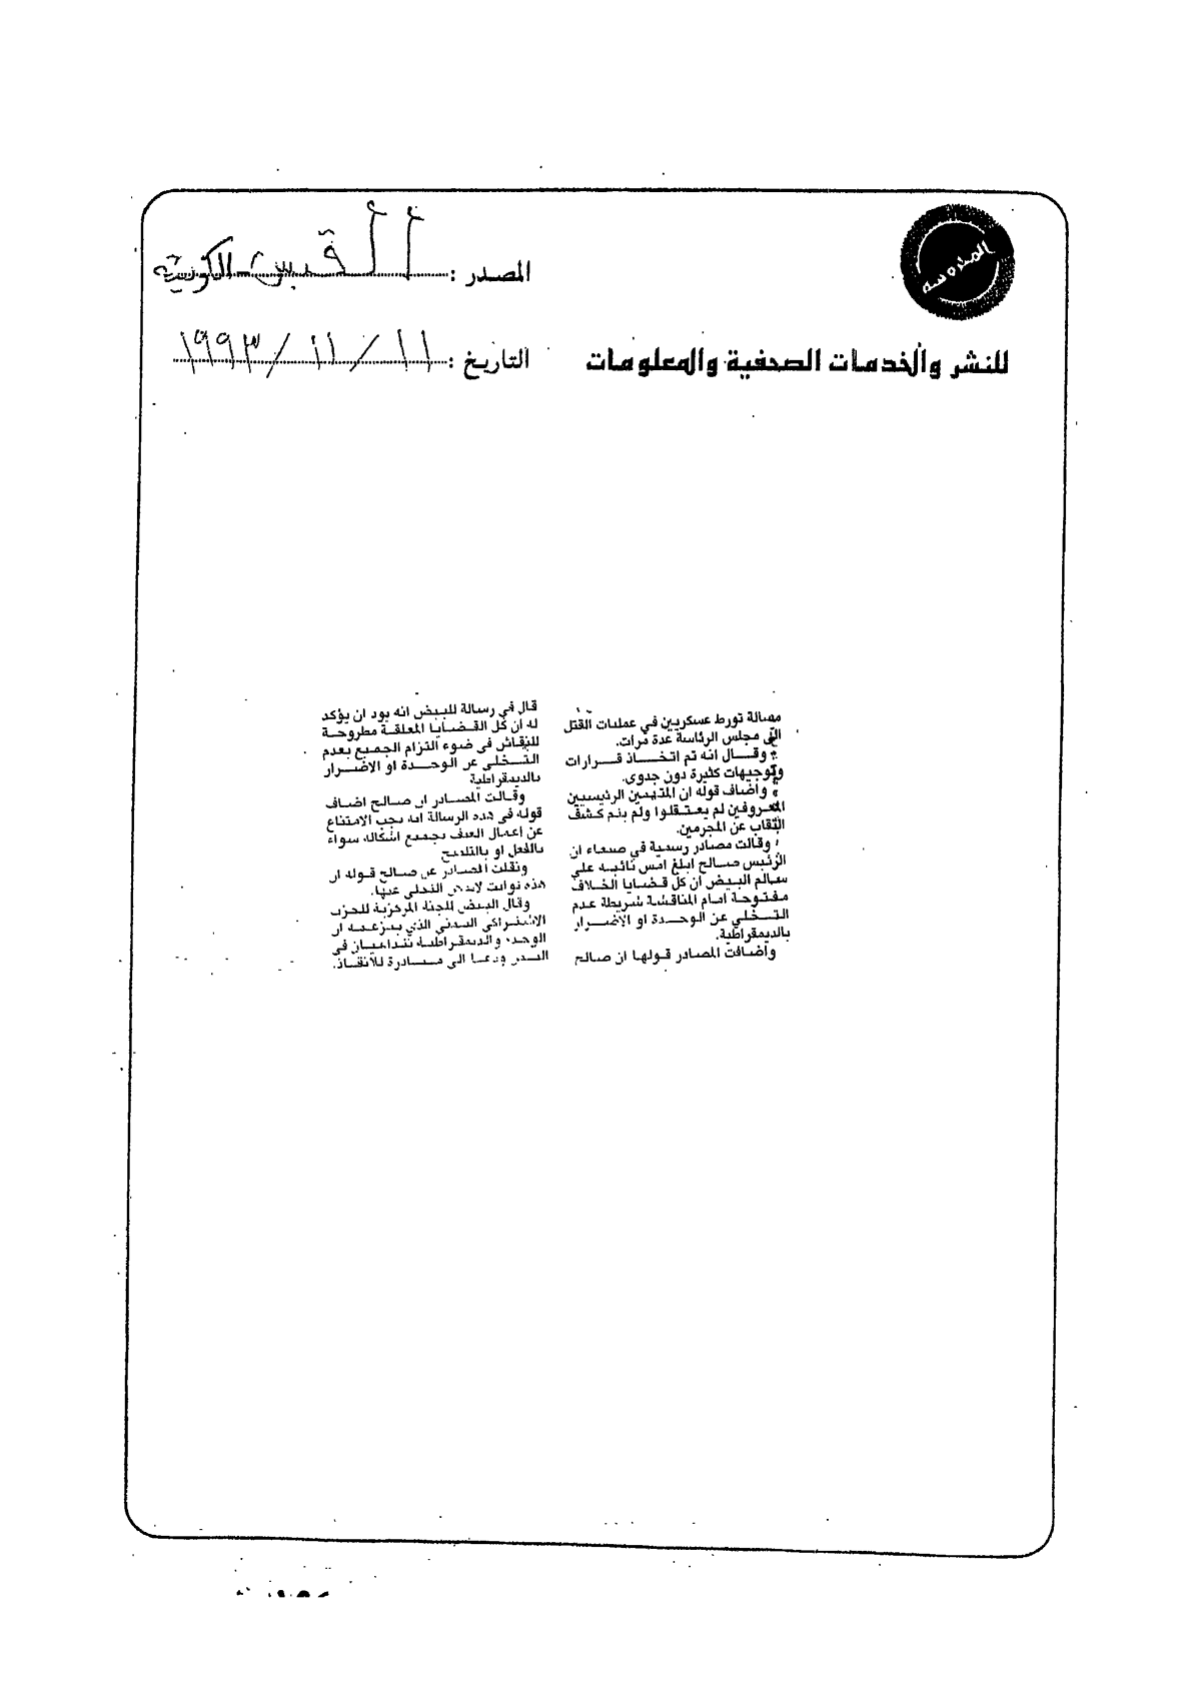 المصدر : القبس الكويتية
للنشر والخدمات الصحفية والمعلومات
التاريخ : ١١ / ١١ / ١٩٩٣
مسالة تورط عسكريين في عمليات القتل
الى مجلس الرئاسة عدة مرات.
وقال انه تم اتخاذ قرارات
وتوجيهات كثيرة دون جدوى.
واضاف قوله ان المتهمين الرئيسيين
المعروفين لم يعتقلوا ولم يتم كشف
النقاب عن المجرمين.
وقالت مصادر رسمية في صنعاء ان
الرئيس صالح ابلغ امس نائبه علي
سالم البيض ان كل قضايا الخلاف
مفتوحة امام المناقشة شريطة عدم
التخلي عن الوحدة او الاضرار
بالديمقراطية.
واضافت المصادر قولها ان صالح
قال في رسالة للبيض انه يود ان يؤكد
له ان كل القضايا المعلقة مطروحة
للنقاش في ضوء التزام الجميع بعدم
التخلي عن الوحدة او الاضرار
بالديمقراطية
وقالت المصادر ان صالح اضاف
قوله في هذه الرسالة انه يجب الامتناع
عن اعمال العنف بجميع اشكاله سواء
بالفعل او بالتلميح
ونقلت المصادر عن صالح قوله ان
هذه ثوابت لا يمكن التخلي عنها.
وقال البيض للجنة المركزية للحزب
الاشتراكي اليمني الذي يتزعمه ان
الوحدة والديمقراطية تتداعيان في
اليمن ودعا الى مبادرة للانقاذ.